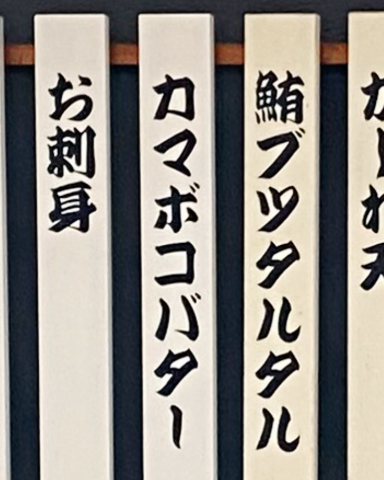 鮪ブツタルタル
カマボコバター
お刺身